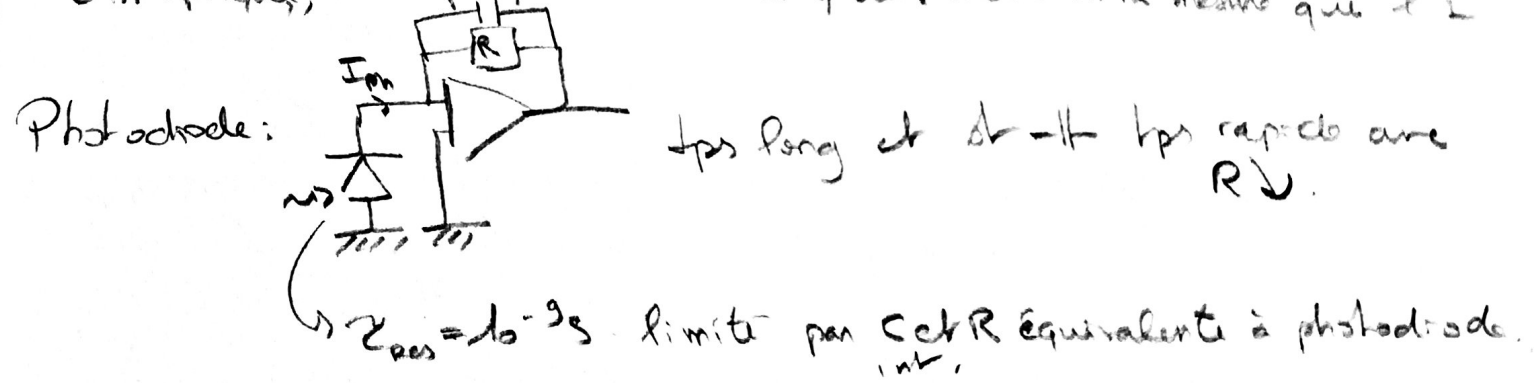 que
R
I ph
Photodiode:
tps long et dt -||- tps rapide avec
R↓.
τ res = 10⁻⁹s limité par C et R équivalente à photodiode.
int.